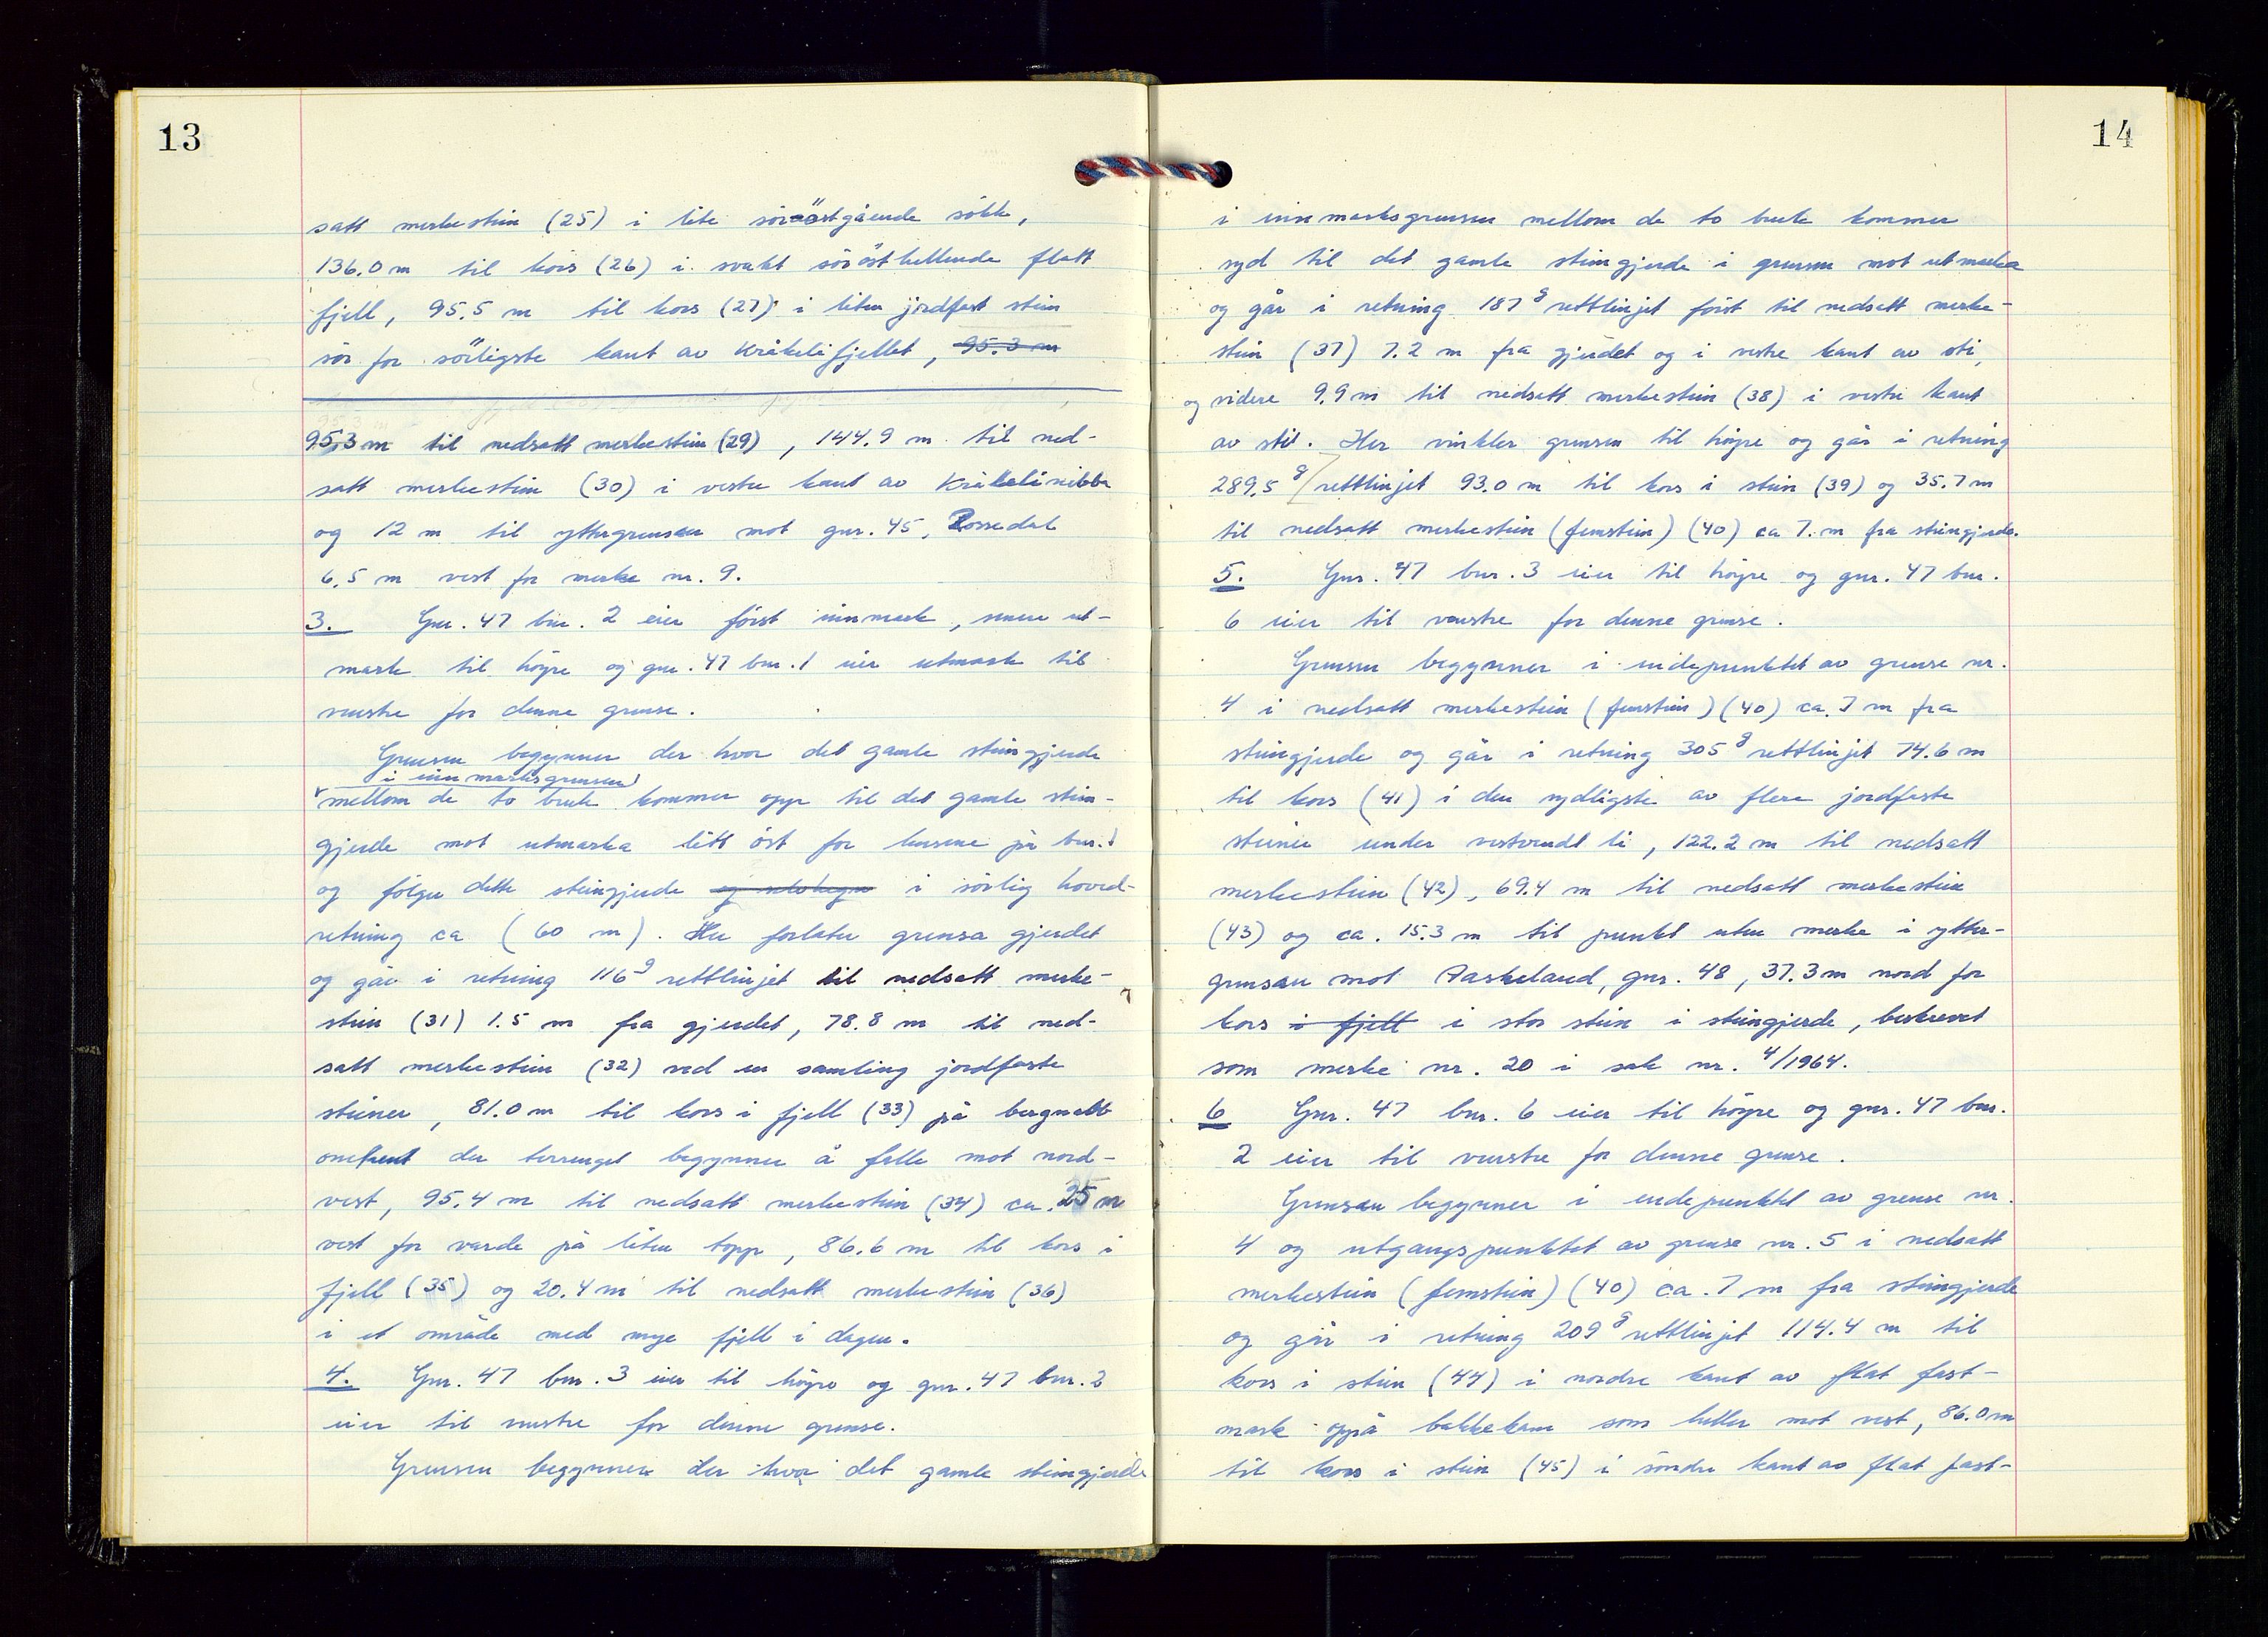 13
satt merkestein (25) i lite söröstgående sökk,
136.0 m til kors (26) i svakt sörösthellende flatt
fjell, 95.5 m til kors (27) i liten jordfast stein
sör for sörligste kant av Kråkelifjellet, 95.3 m
95,3 m til nedsatt merkestein (29), 144.9 m til ned-
satt merkestein (30) i vestre kant av Kråkelinibba
og 12 m til yttergrensen mot gnr. 45, Rossedal
6.5 m vest for merke nr. 9.
3. Gnr. 47 bnr. 2 eier först innmark, senere ut-
mark til höyre og gnr. 47 bnr. 1 eier utmark til
venstre for denne grense.
Grensen begynner der hvor det gamle steingjerde
i innmarksgrensen
mellom de to bruk kommer opp til det gamle stein-
gjerde mot utmarka litt öst for husene på bnr. 1
og fölger dette steingjerde og selvhegn i sörlig hoved-
retning ca (60 m). Her forlater grensa gjerdet
og går i retning 116g rettlinjet til nedsatt merke-
stein (31) 1.5 m fra gjerdet, 78.8 m til ned-
satt merkestein (32) ved en samling jordfaste
steiner, 81.0 m til kors i fjell (33) på bergnabb
omtrent der terrenget begynner å falle mot nord-
vest, 95.4 m til nedsatt merkestein (34) ca. 25 m
vest for varde på liten topp, 86.6 m til kors i
fjell (35) og 20.4 m til nedsatt merkestein (36)
i et område med mye fjell i dagen.
4. Gnr. 47 bnr. 3 eier til höyre og gnr. 47 bnr. 2
eier til venstre for denne grense.
Grensen begynner der hvor det gamle steingjerde
14
i innmarksgrensen mellom de to bruk kommer
syd til det gamle steingjerde i grensen mot utmarka
og går i retning 187g rettlinjet först til nedsatt merke-
stein (37) 7.2 m fra gjerdet og i vestre kant av sti,
og videre 9.9 m til nedsatt merkestein (38) i vestre kant
av sti. Her vinkler grensen til höyre og går i retning
289.5g rettlinjet 93.0 m til kors i stein (39) og 35.7 m
til nedsatt merkestein (femstein) (40) ca 7. m fra steingjerde.
5. Gnr. 47 bnr. 3 eier til höyre og gnr. 47 bnr.
6 eier til venstre for denne grense.
Grensen begynner i endepunktet av grense nr.
4 i nedsatt merkestein (femstein) (40) ca. 7 m fra
steingjerde og går i retning 305g rettlinjet 74.6 m
til kors (41) i den sydligste av flere jordfaste
steiner under vestvendt li, 122.2 m til nedsatt
merkestein (42), 69.4 m til nedsatt merkestein
(43) og ca. 15.3 m til punkt uten merke i ytter-
grensen mot Aaskeland, gnr. 48, 37.3 m nord for
kors i fjell i stor stein i steingjerde, beskrevet
som merke nr. 20 i sak nr. 4/1964.
6 Gnr. 47 bnr. 6 eier til höyre og gnr. 47 bnr.
2 eier til venstre for denne grense.
Grensen begynner i endepunktet av grense nr.
4 og utgangspunktet av grense nr. 5 i nedsatt
merkestein (femstein) (40) ca. 7 m fra steingjerde
og går i retning 209g rettlinjet 114.4 m til
kors i stein (44) i nordre kant av flat fast-
mark oppå bakkekam som heller mot vest, 86.0 m
til kors i stein (45) i söndre kant av flat fast-